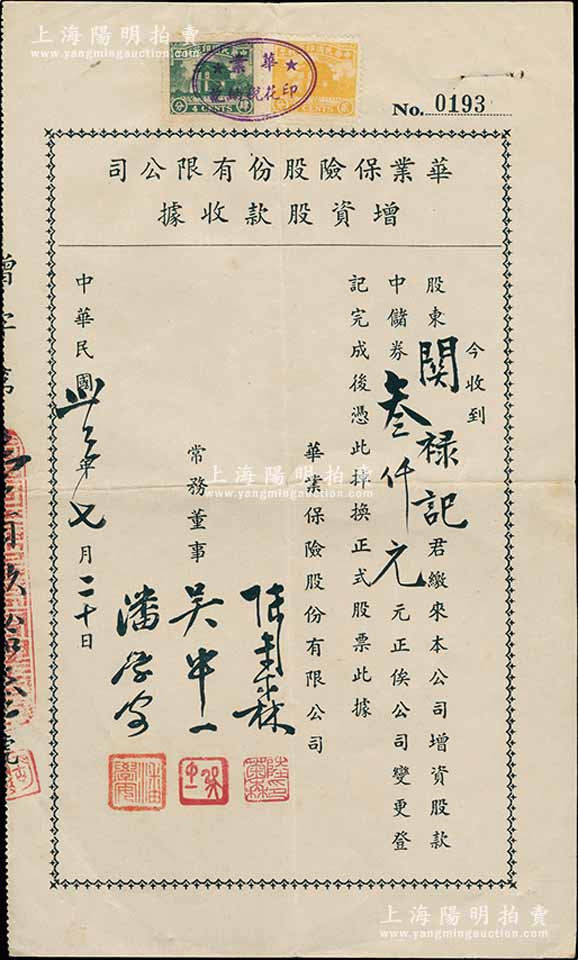 上海陽明拍賣
www.yangmingauction.com
4 CENTS
CENTS
華業
印花稅
No. 0193
華業保險股份有限公司
增資股款收據
今收到
股東關祿記君繳來本公司增資股款
中儲券叁仟元元正俟公司變更登
記完成後憑此掉換正式股票此據
華業保險股份有限公司
常務董事
吳中一
潘學安
中華民國卅三年七月二十日
上海陽明拍賣
www.yangmingauction.com
上海陽明拍賣
www.yangmingauction.com